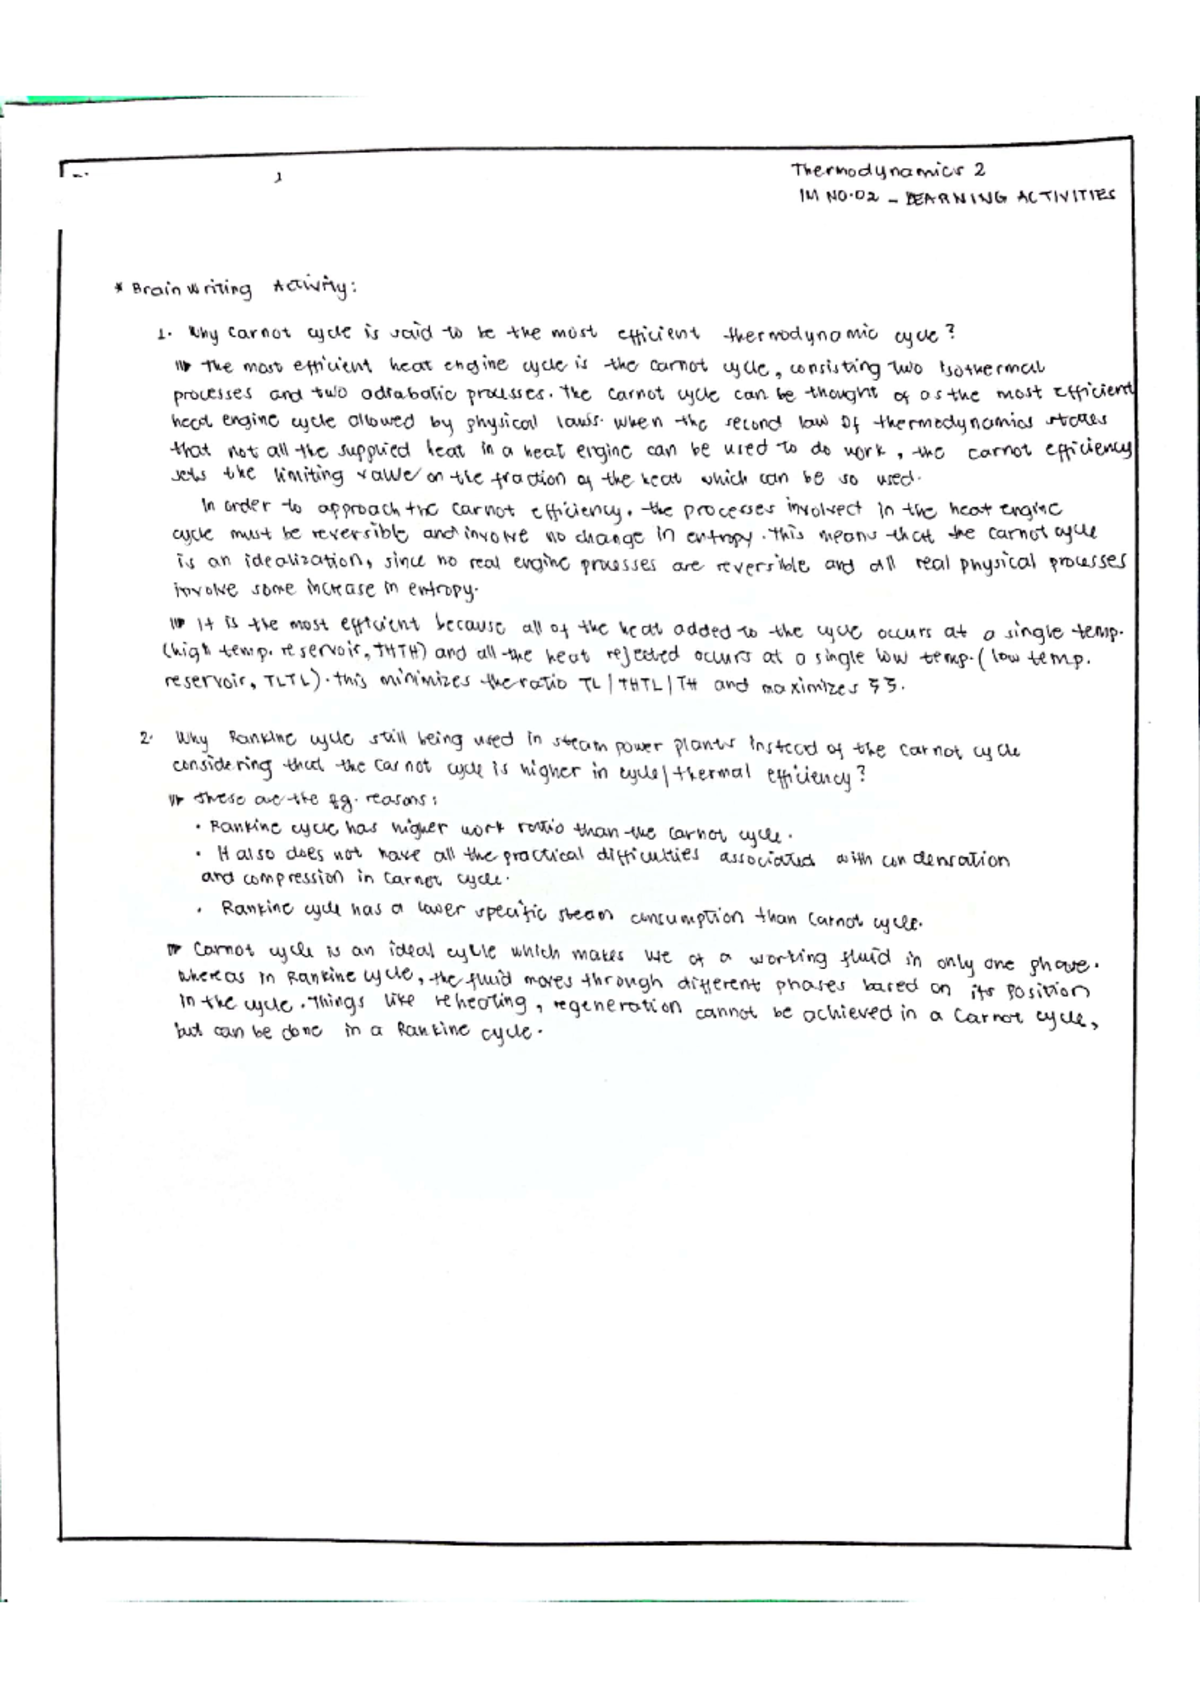 Thermodynamics 2
IM NO.02 - LEARNING ACTIVITIES
* Brain Writing Activity:
1. Why Carnot cycle is said to be the most efficient thermodynamic cycle?
The most efficient heat engine cycle is the carnot cycle, consisting two isothermal
processes and two adiabatic processes. The carnot cycle can be thought of as the most efficient
heat engine cycle allowed by physical laws. when the second law of thermodynamics states
that not all the supplied heat in a heat engine can be used to do work, the carnot efficiency
sets the limiting value on the fraction of the heat which can be so used.
In order to approach the carnot efficiency, the processes involved in the heat engine
cycle must be reversible and involve no change in entropy. This means that the carnot cycle
is an idealization, since no real engine processes are reversible and all real physical processes
involve some increase in entropy.
It is the most efficient because all of the heat added to the cycle occurs at a single temp.
(high temp. reservoir, THTH) and all the heat rejected occurs at a single low temp. (low temp.
reservoir, TLTL). this minimizes the ratio TL|THTL|TH and maximizes
2. Why Rankine cycle still being used in steam power plants instead of the carnot cycle
considering that the Carnot cycle is higher in cycle/thermal efficiency?
These are the fg. reasons:
• Rankine cycle has higher work ratio than the carnot cycle.
• It also does not have all the practical difficulties associated with condensation
and compression in Carnot cycle.
• Rankine cycle has a lower specific steam consumption than Carnot cycle.
Carnot cycle is an ideal cycle which makes use of a working fluid in only one phase.
whereas in Rankine cycle, the fluid moves through different phases based on its position
in the cycle. Things like reheating, regeneration cannot be achieved in a Carnot cycle,
but can be done in a Rankine cycle.